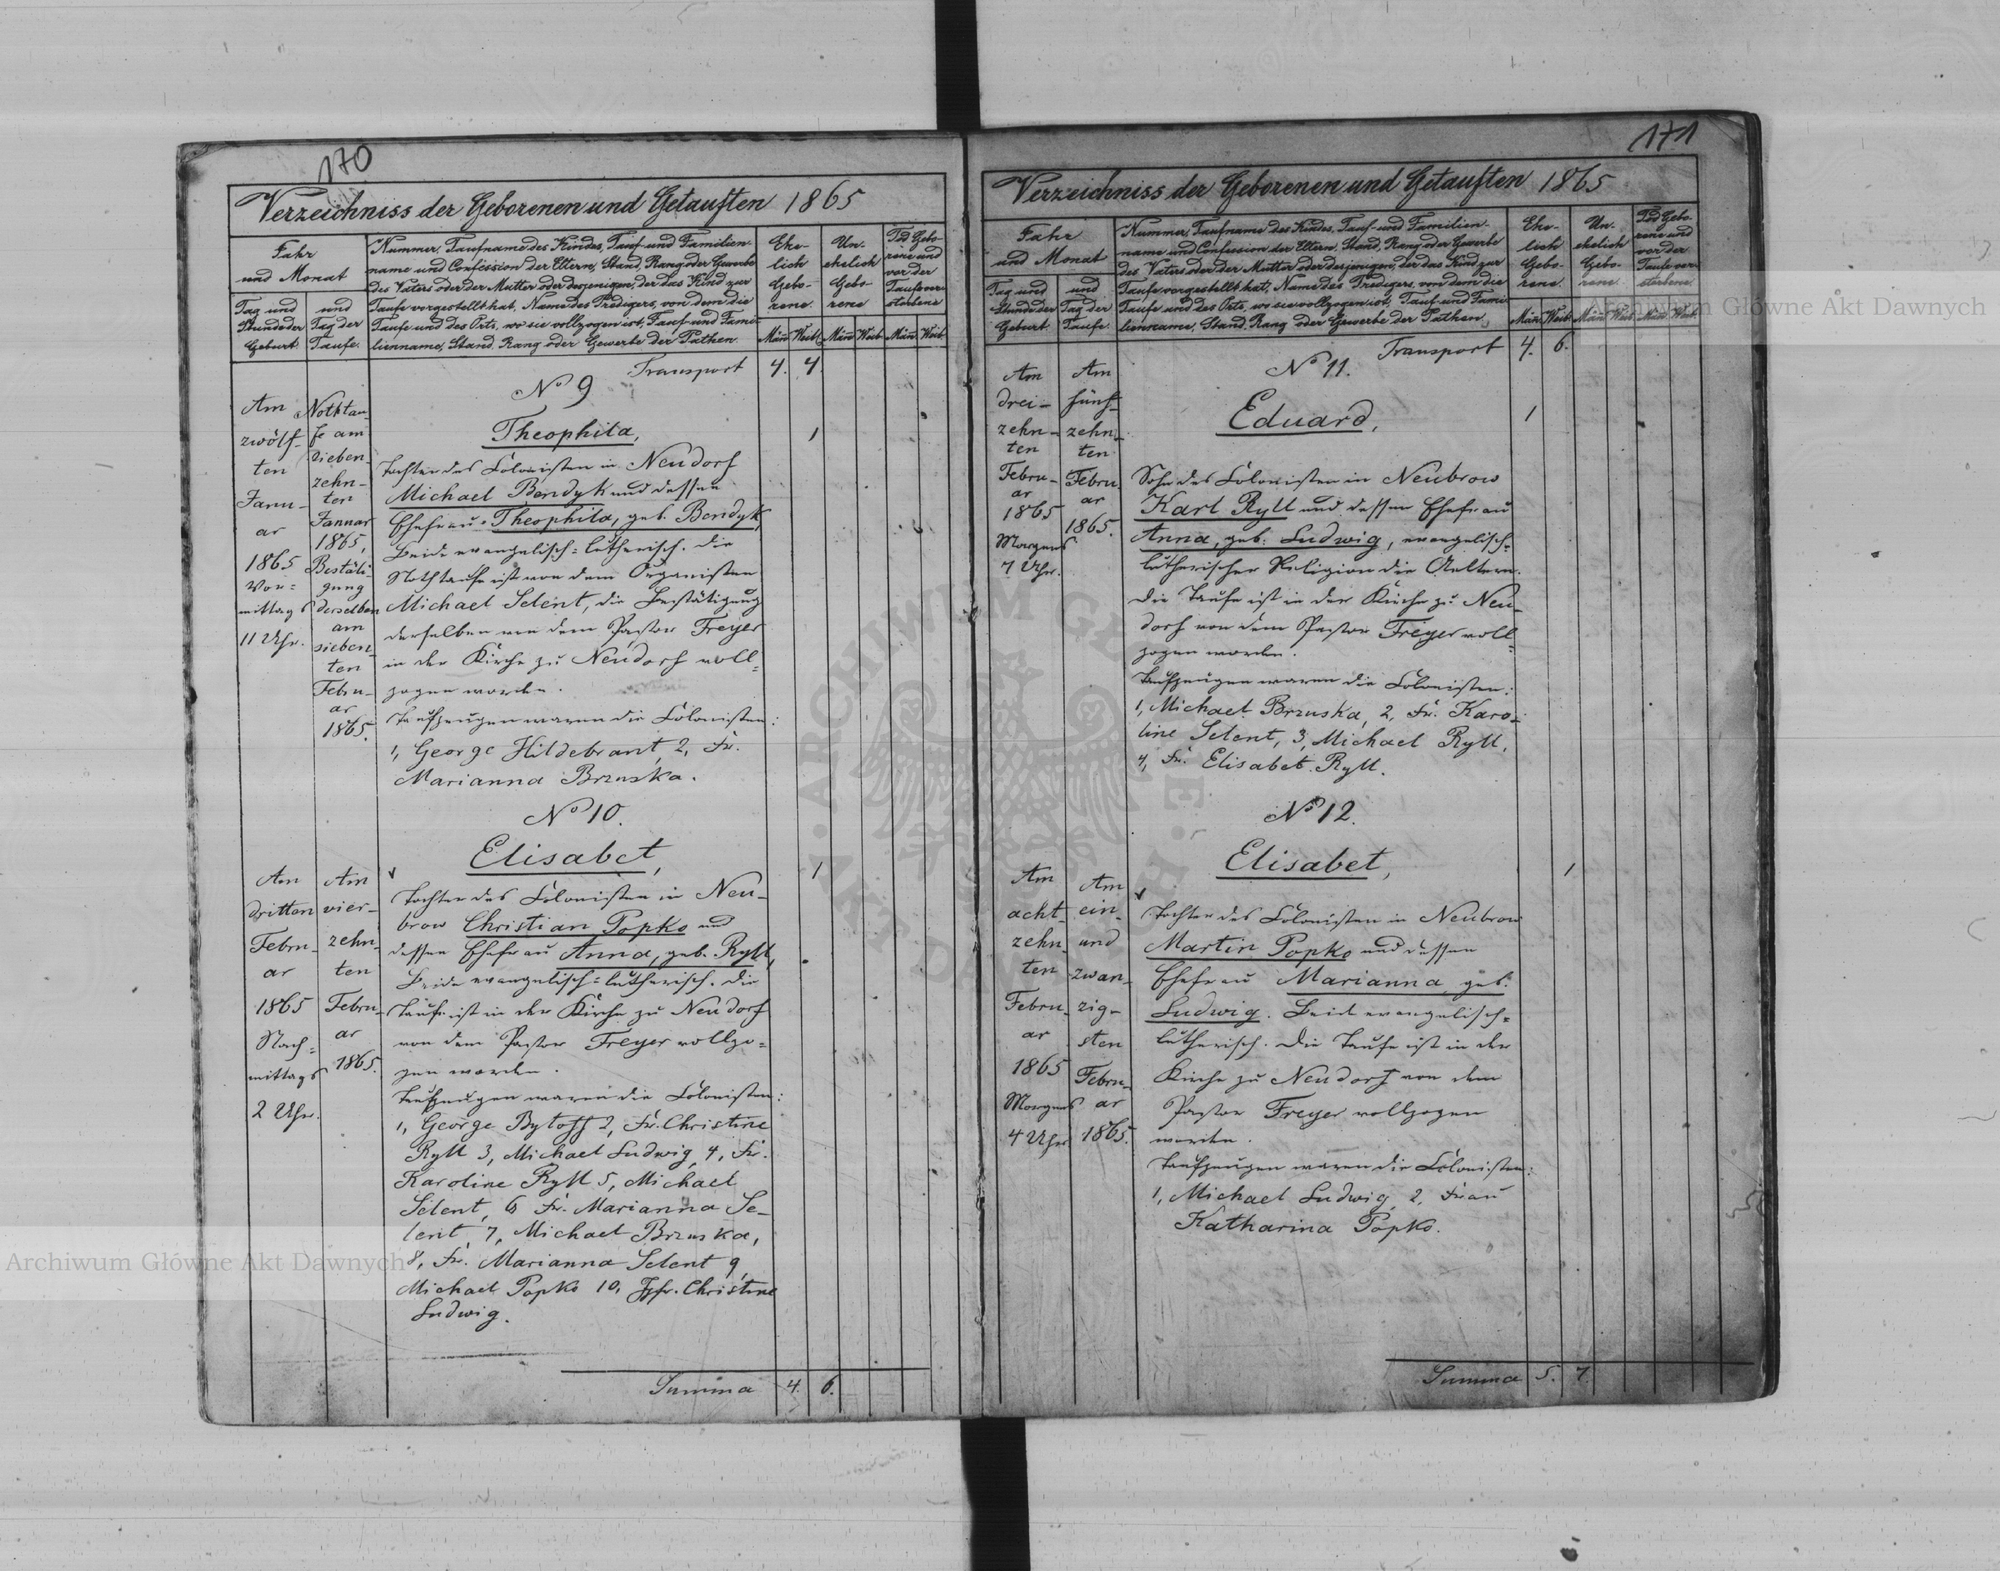 170
Verzeichniss der Geborenen und Getauften 1865
Jahr
und Monat
Tag und
Stunde der
Geburt.
und
Tag der
Taufe.
Nummer, Taufname des Kindes, Tauf- und Familien-
name und Confession der Eltern, Stand, Rang oder Gewerbe
des Vaters oder der Mutter oder desjenigen, der das Kind zur
Taufe vorgestellt hat, Name des Predigers, von dem die
Taufe und des Orts, wo sie vollzogen ist, Tauf- und Fami-
lienname, Stand, Rang oder Gewerbe der Pathen.
Ehe-
lich
Gebo-
rene.
Un-
ehelich
Gebo-
rene
Tod Gebo-
rene und
vor der
Taufe ver-
storbene
Män Weib Män Weib Män Weib
Transport 4. 4.
No 9
Am
zwölf-
ten
Janu-
ar
1865
Vor-
mittags
11 Uhr.
Nothtau-
fe am
sieben-
zehn-
ten
Januar
1865,
Bestäti-
gung
derselben
am
sieben-
ten
Febru-
ar
1865.
Theophila, 1
Tochter des Colonisten in Neudorf
Michael Bendyk und dessen
Ehefrau Theophila, geb. Bendyk,
Beide evangelisch-lutherisch. Die
Nothtaufe ist von dem Organisten
Michael Selent, die Bestätigung
derselben von dem Pastor Freyer
in der Kirche zu Neudorf voll-
zogen worden.
Taufzeugen waren die Colonisten:
1, George Hildebrant, 2, Fr.
Marianna Brzuska.
No 10.
Am
dritten
Febru-
ar
1865
Nach-
mittags
2 Uhr.
Am
vier-
zehn-
ten
Febru-
ar
1865.
Elisabet, 1
Tochter des Colonisten in Neu-
brow Christian Popko und
dessen Ehefrau Anna, geb. Ryll,
Beide evangelisch-lutherisch. Die
Taufe ist in der Kirche zu Neudorf
von dem Pastor Freyer vollzo-
gen worden.
Taufzeugen waren die Colonisten:
1, George Bytoff 2, Fr. Christine
Ryll 3, Michael Ludwig, 4, Fr.
Karoline Ryll 5, Michael
Selent, 6 Fr. Marianna Se-
lent, 7, Michael Brzuska,
8, Fr. Marianna Selent 9,
Michael Popko 10, Jgfr. Christine
Ludwig.
Summa 4. 6.
171
Verzeichniss der Geborenen und Getauften 1865
Jahr
und Monat
Tag und
Stunde der
Geburt
und
Tag der
Taufe
Nummer, Taufname des Kindes, Tauf- und Familien-
name und Confession der Eltern, Stand, Rang oder Gewerbe
des Vaters oder der Mutter oder desjenigen, der das Kind zur
Taufe vorgestellt hat, Name des Predigers, von dem die
Taufe und des Orts, wo sie vollzogen ist, Tauf- und Fami-
lienname, Stand, Rang oder Gewerbe der Pathen.
Ehe-
lich
Gebo-
rene.
Un-
ehelich
Gebo-
rene.
Tod Gebo-
rene und
vor der
Taufe ver-
storbene.
Män Weib Män Weib Män Weib
Transport 4. 6.
No 11.
Am
drei-
zehn-
ten
Febru-
ar
1865
Morgens
7 Uhr.
Am
fünf-
zehn-
ten
Febru-
ar
1865.
Eduard, 1
Sohn des Colonisten in Neubrow
Karl Ryll und dessen Ehefrau
Anna, geb. Ludwig, evangelisch-
lutherischer Religion die Aeltern.
Die Taufe ist in der Kirche zu Neu-
dorf von dem Pastor Freyer voll-
zogen worden.
Taufzeugen waren die Colonisten:
1, Michael Brzuska, 2, Fr. Karo-
line Selent, 3, Michael Ryll,
4, Fr. Elisabet Ryll.
No 12.
Am
acht-
zehn-
ten
Febru-
ar
1865
Morgens
4 Uhr
Am
ein-
und
zwan-
zig-
sten
Febru-
ar
1865.
Elisabet, 1
Tochter des Colonisten in Neubrow
Martin Popko und dessen
Ehefrau Marianna, geb.
Ludwig. Beide evangelisch-
lutherisch. Die Taufe ist in der
Kirche zu Neudorf von dem
Pastor Freyer vollzogen
worden.
Taufzeugen waren die Colonisten:
1, Michael Ludwig, 2, Frau
Katharina Popko.
Summa 5. 7.
Archiwum Główne Akt Dawnych
Archiwum Główne Akt Dawnych